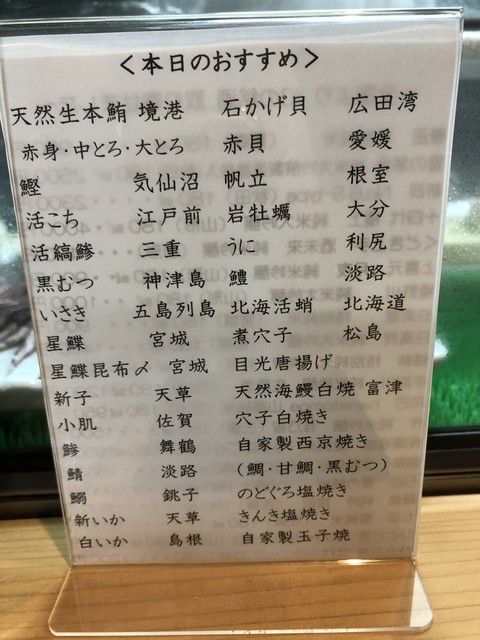 ＜本日のおすすめ＞
天然生本鮪 境港 石かげ貝 広田湾
赤身・中とろ・大とろ 赤貝 愛媛
鰹 気仙沼 帆立 根室
活こち 江戸前 岩牡蠣 大分
活縞鯵 三重 うに 利尻
黒むつ 神津島 鱧 淡路
いさき 五島列島 北海活蛸 北海道
星鰈 宮城 煮穴子 松島
星鰈昆布〆 宮城 目光唐揚げ
新子 天草 天然海鰻白焼 富津
小肌 佐賀 穴子白焼き
鯵 舞鶴 自家製西京焼き
鯖 淡路 （鯛・甘鯛・黒むつ）
鰯 銚子 のどぐろ塩焼き
新いか 天草 きんき塩焼き
白いか 島根 自家製玉子焼